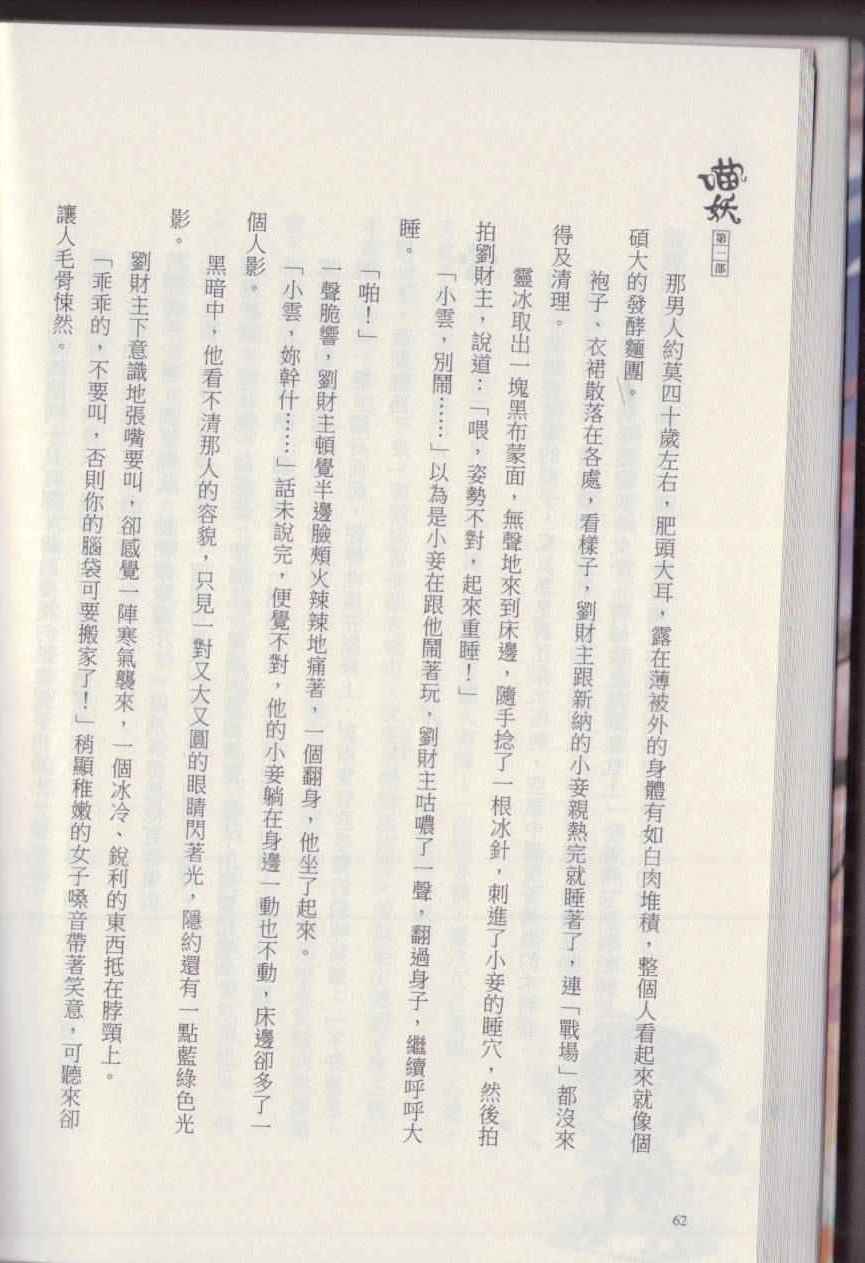 喵妖
第二部
那男人約莫四十歲左右，肥頭大耳，露在薄被外的身體有如白肉堆積，整個人看起來就像個
碩大的發酵麵團。
袍子、衣裙散落在各處，看樣子，劉財主跟新納的小妾親熱完就睡著了，連「戰場」都沒來
得及清理。
靈冰取出一塊黑布蒙面，無聲地來到床邊，隨手捻了一根冰針，刺進了小妾的睡穴，然後拍
拍劉財主，說道：「喂，姿勢不對，起來重睡！」
「小雲，別鬧……」以為是小妾在跟他鬧著玩，劉財主咕噥了一聲，翻過身子，繼續呼呼大
睡。
「啪！」
一聲脆響，劉財主頓覺半邊臉頰火辣辣地痛著，一個翻身，他坐了起來。
「小雲，妳幹什……」話未說完，便覺不對，他的小妾躺在身邊一動也不動，床邊卻多了一
個人影。
黑暗中，他看不清那人的容貌，只見一對又大又圓的眼睛閃著光，隱約還有一點藍綠色光
影。
劉財主下意識地張嘴要叫，卻感覺一陣寒氣襲來，一個冰冷、銳利的東西抵在脖頸上。
「乖乖的，不要叫，否則你的腦袋可要搬家了！」稍顯稚嫩的女子嗓音帶著笑意，可聽來卻
讓人毛骨悚然。
62